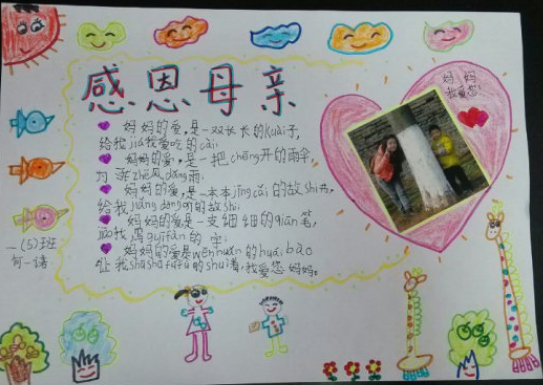 感恩母亲
妈妈的爱,是一双长长的Kuài子,
给我jiā我爱吃的cài.
妈妈的爱,是一把chēng开的雨伞,
为 zhē风dǎng雨.
妈妈的爱,是一本本jīng cǎi的故shi书,
给我 的故shi.
妈妈的爱是一支细细的qiān笔,
我 guī fàn的字;
妈妈的爱是wēn nuǎn的huái bào
让我shū shū fú fú的shuì着.我爱您妈妈。
妈妈
我爱您!
一(5)班
何一